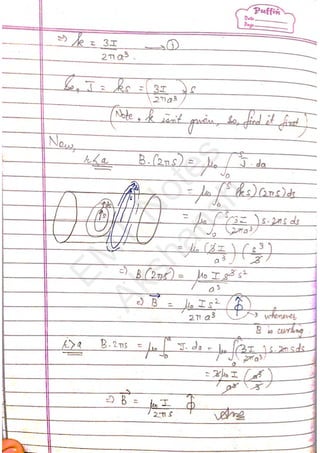 Puffin
Date
Page
⇒ k = 3I / 2πa³ → ①
So, J = ks = (3I / 2πa³) s
(Note, k isn't given, so, find it first)
Now,
r<a B.(2πs) = μ₀ ∫₀ˢ J. da
= μ₀ ∫₀ˢ (ks) (2πs) ds
= μ₀ ∫₀ˢ (3I / 2πa³) s. 2πs ds
= μ₀ (3I / a³) (s³ / 3)
⇒ B (2πs) = μ₀ I s³ / a³
⇒ B⃗ = μ₀ I s² / 2πa³ Φ̂ → whenever
B is curling
r>a B. 2πs = μ₀ ∫₀ᵃ J. da = μ₀ ∫₀ᵃ (3I / 2πa³) s. 2πs ds
= 3μ₀ I / a³ (a³ / 3)
⇒ B⃗ = μ₀ I / 2πs Φ̂